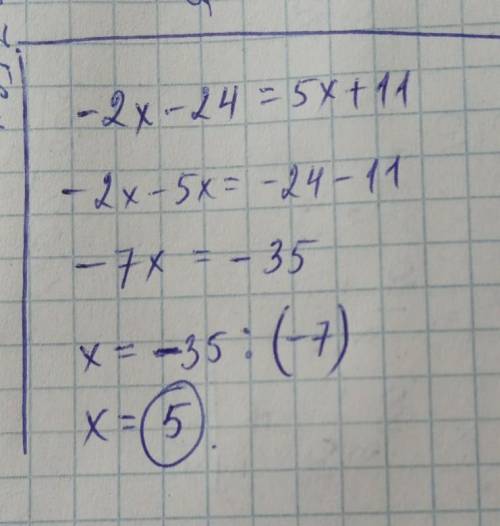 -2x-24=5x+11
-2x-5x=-24-11
-7x=-35
x=-35:(-7)
x=5.